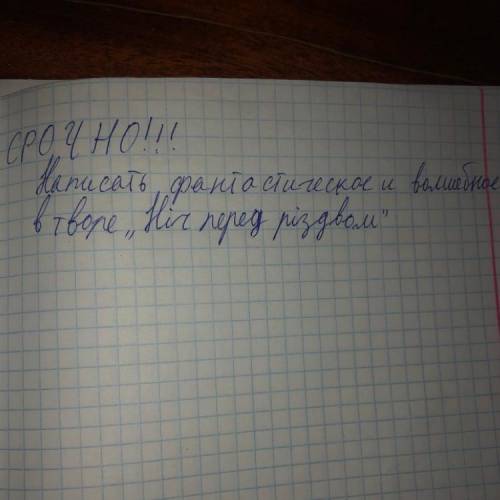 СРОЧНО!!!
Написать фантастическое и волшебное
в творе „Ніч перед різдвом"